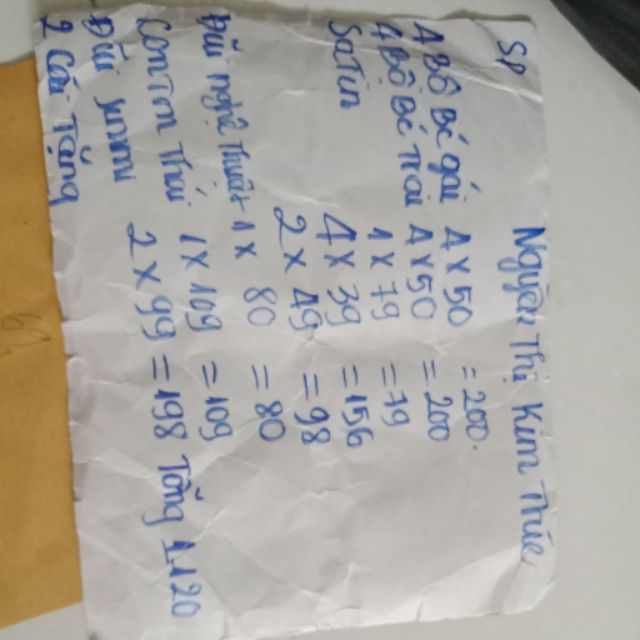 Sp Nguyễn Thị Kim Thúe
4 Bộ Bé gái 4 x 50 = 200
4 Bộ Bé Trai 4 x 50 = 200
1 x 79 = 79
Satin 4 x 39 = 156
2 x 49 = 98
nghệ Thuật 1 x 80 = 80
Thú 1 x 109 = 109
2 x 99 = 198 Tổng 1.120
2 Cái Tặng